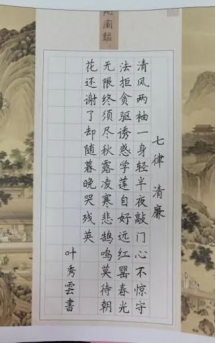 七律 清廉
清风两袖一身轻半夜敲门心不惊守
法拒贪驱诱惑学莲自好远红罂春光
无限终须尽秋露凉寒悲鹄鸣莫待朝
花还谢了却随暮晚哭残英
叶秀雲書